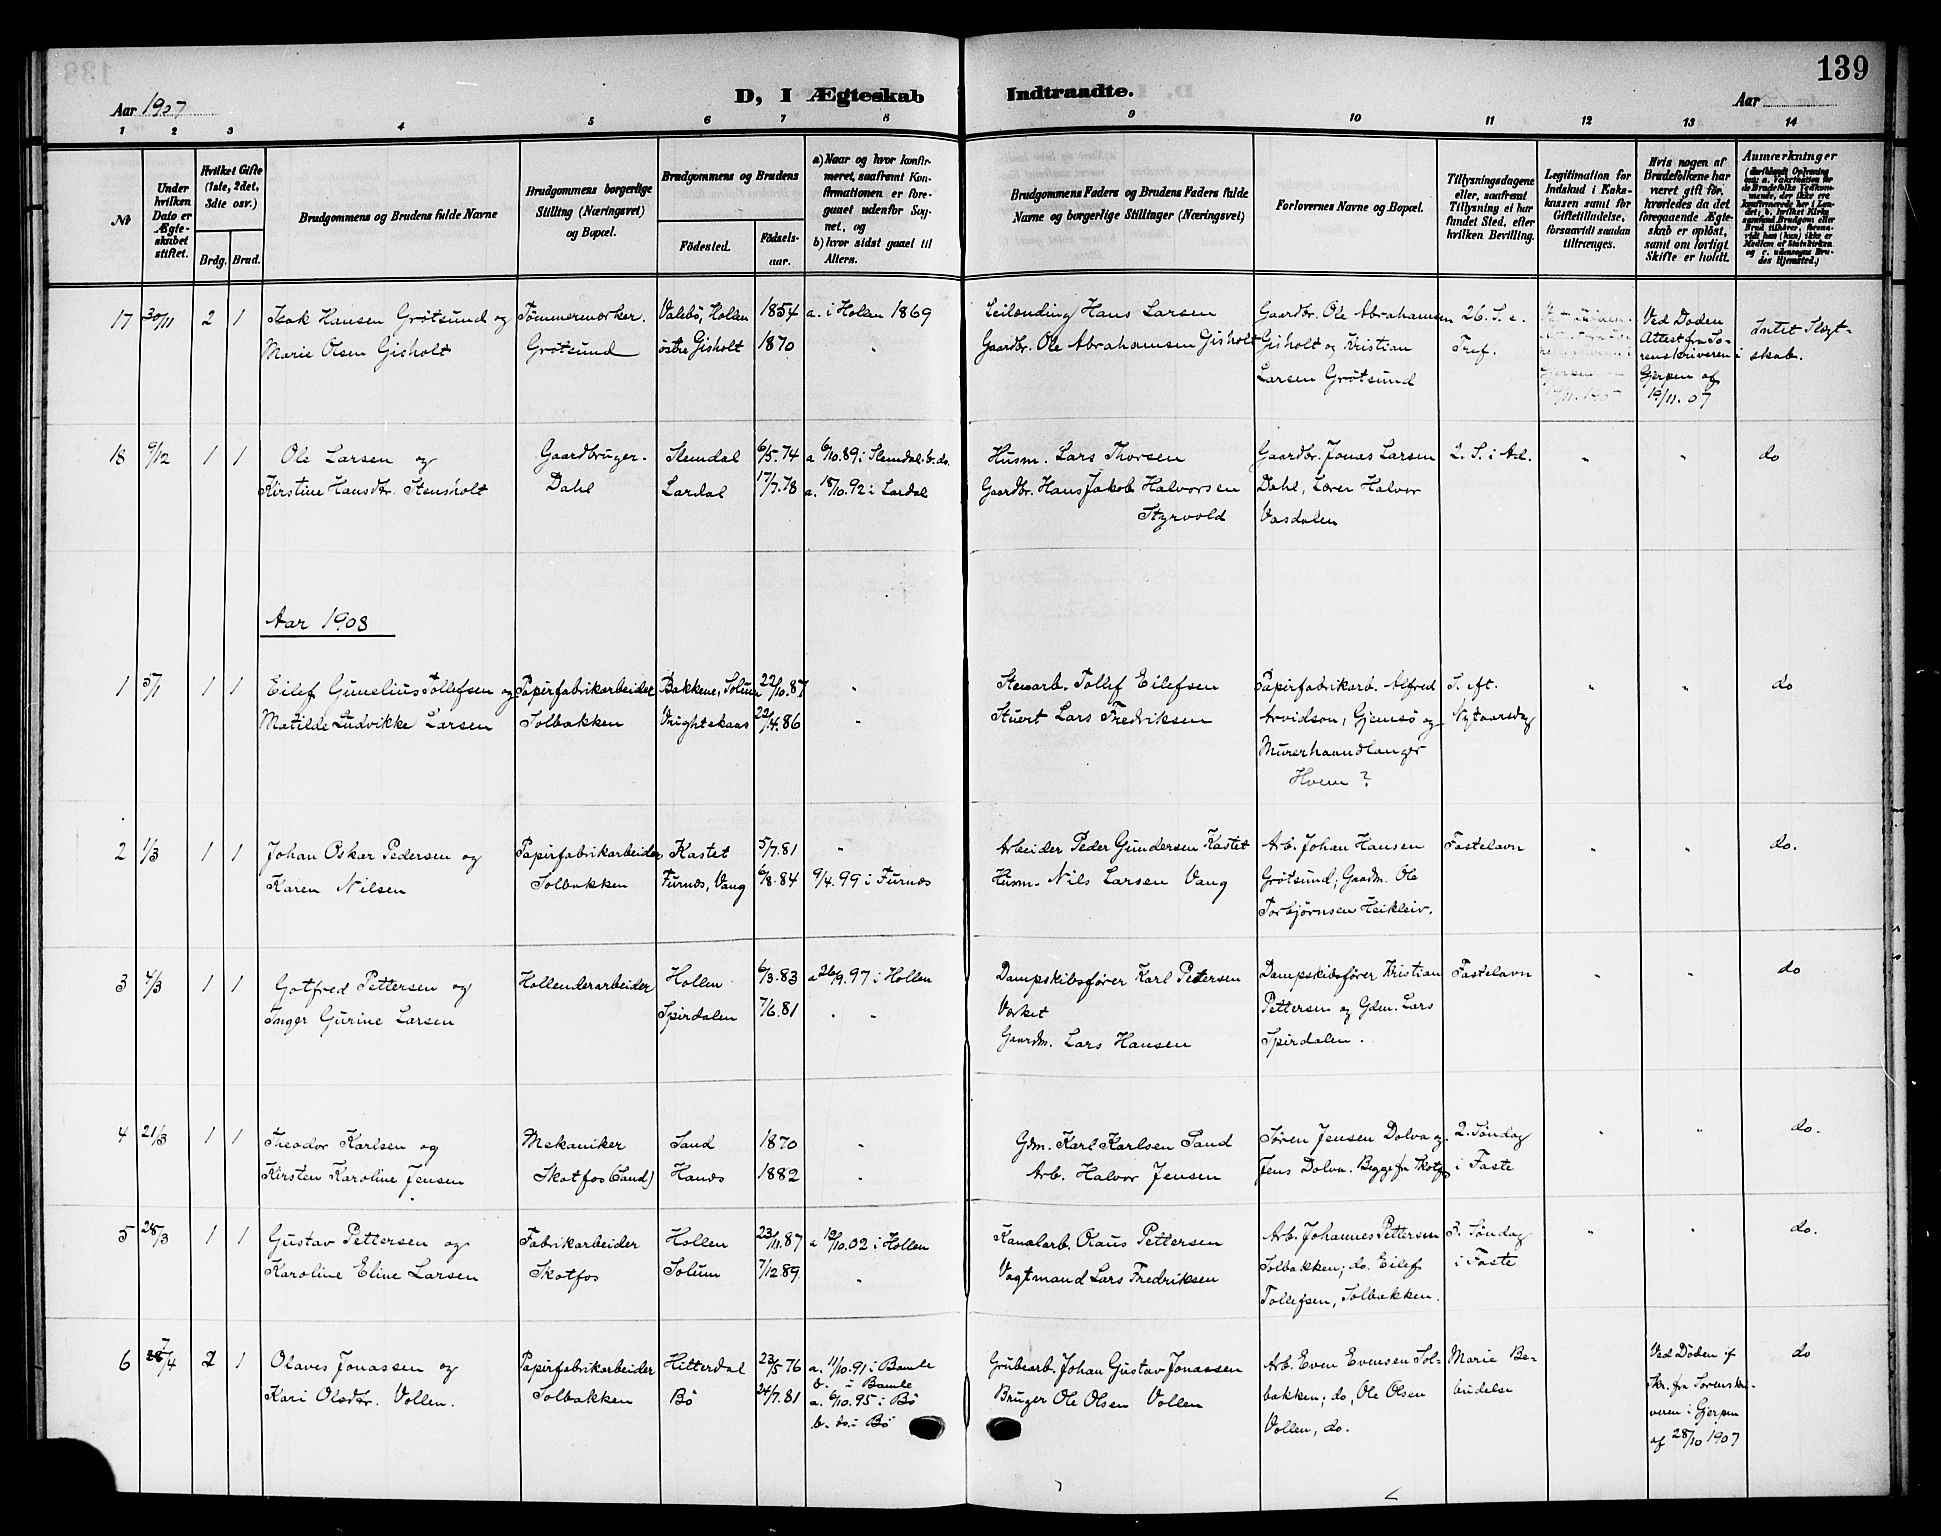 139
Aar 1907
D, I Ægteskab Indtraadte.
Aar
1 2 3 4 5 6 7 8 9 10 11 12 13 14
№
Under hvilken Dato er Ægteskabet stiftet.
Hvilket Gifte (1ste, 2det, 3die osv.)
Brdg. Brud.
Brudgommens og Brudens fulde Navne
Brudgommens borgerlige Stilling (Næringsvei) og Bopæl.
Brudgommens og Brudens
Fødested. Fødselsaar.
a) Naar og hvor konfirmeret, saafremt Konfirmationen er foregaaet udenfor Sognet, og
b) hvor sidst gaaet til Alters.
Brudgommens Faders og Brudens Faders fulde Navne og borgerlige Stillinger (Næringsvei)
Forlovernes Navne og Bopæl.
Tillysningsdagene eller, saafremt Tillysning ei har fundet Sted, efter hvilken Bevilling.
Legitimation for Indskud i Enkekassen samt for Giftetilladelse, forsaavidt saadan tiltrænges.
Hvis nogen af Brudefolkene har været gift før, hvorledes da det foregaaende Ægteskab er opløst, samt om lovligt Skifte er holdt.
Anmærkninger
17 30/11 2 1 Isak Hansen Grötsund og Tømmermerker. Valebö, Hollen 1854 a. i Holen 1869 Leilænding Hans Larsen Gaardbr. Ole Abrahamsen 26. S. e. Ved Døden Intet Slegt-
Marie Olsen Gisholt Grötsund östre Gisholt 1870 " Gaardbr. Ole Abrahamsen Gisholt Gisholt og Kristian Tref. Attest fra So- skab.
Larsen Grötsund renskriveren i
Gjerpen af
19/11. 07
18 9/12 1 1 Ole Larsen og Gaardbruger. Slemdal 6/5.74 a 6/10.89 i Slemdal. b. do. Husm. Lars Thorsen Gaardbr. Jonas Larsen 2. S. i Ad. " " do
Kirstine Hansdtr. Stensholt Dahl Lardal 17/7.78 a. 18/10.92 i Lardal Gaardbr. Hans Jakob Halvorsen Dahl, Lærer Halvor
Styrvold Vasdalen
Aar 1908
1 5/1 1 1 Eilef Gunelius Tollefsen og Papirfabrikarbeider Bakkene, Solum 22/10.87 " Stenarb. Tollef Eilefsen Papirfabrikarb. Alfred S. eft. " " do
Matilde Ludvikke Larsen Solbakken Vrightskaas 22/4.86 " Stuert Lars Fredriksen Arvidson, Gjemsö og Nytaarsdag
Murerhaandlanger
Hvem ?
2 1/3 1 1 Johan Oskar Pedersen og Papirfabrikarbeider Kastet 5/7.81 " Arbeider Peder Gundersen Kastet Arb. Johan Hansen Fastelavn " " do.
Karen Nilsen Solbakken Furnæs, Vang 6/8.84 9/4.99 i Furnæs Husm. Nils Larsen Vang Grötsund; Gaadm. Ole
Torbjørnsen Heikleiv.
3 4/3 1 1 Gotfred Pettersen og Hollenderarbeider Hollen 6/3.83 a 26/9.97 i Hollen Dampskibsfører Karl Petersen Dampskibsfører Kristian Fastelavn " " do
Inger Gurine Larsen Spirdalen 7/6.81 " " Verket Pettersen og Gdm. Lars
Gaardm. Lars Hansen Spirdalen.
4 21/3 1 1 Theodor Karlsen og Mekaniker Sand 1870 " Gdm. Karl Karlsen Sand Søren Jensen Dolva og 2. Søndag " " do.
Kirsten Karoline Jensen Skotfos (Sand) Hanæs 1882 " Arb. Halvor Jensen Jens Dolva. Begge fra Skotfos i Faste
5 28/3 1 1 Gustav Pettersen og Fabrikarbeider Hollen 23/11.87 a 12/10.02 i Hollen Kanalarb. Olaus Pettersen Arb. Johannes Pettersen 3. Søndag " " do.
Karoline Eline Larsen Skotfos Solum 7/12.89. " Vagtmand Lars Fredriksen Solbakken; do. Eilef i Faste
Tollefsen, Solbakken.
6 7/4 2 1 Olaves Jonassen og Papirfabrikarbeider Hitterdal 23/5.76 a. 11/10.91 i Bamle Grubearb. Johan Gustav Jonassen Arb. Even Evensen Sol- Marie Be- Ved Døden if. do
b. i Bamle
Kari Olsdtr. Vollen. Solbakken Bö 24/7.81 a. 6/10.95 i Bö Bruger Ole Olsen Vollen bakken; do, Ole Olsen budelse Skr. fra Sorenskri-
b. do. i Bö Vollen, do. veren i Gjerpen
af 28/10 1907